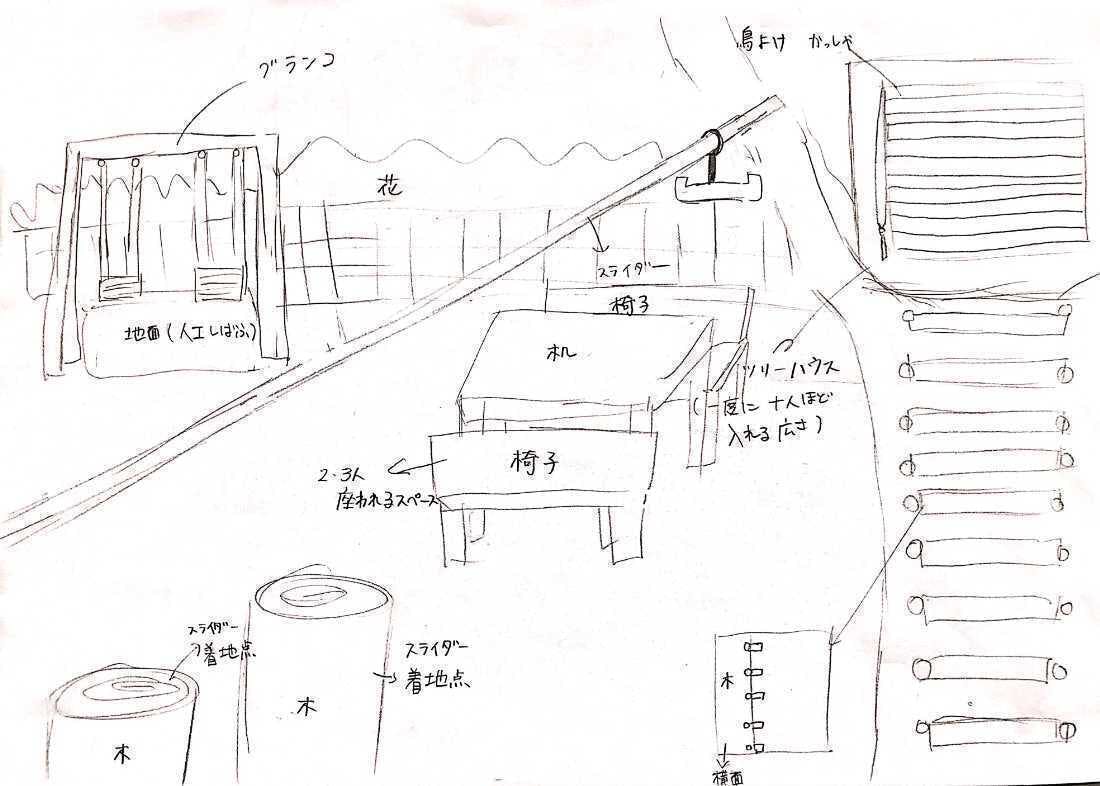 鳥よけ かっしゃ
ブランコ
花
スライダー
椅子
地面(人工しばふ)
机
ツリーハウス
(庭に十人ほど
入れる広さ)
椅子
2・3人
座われるスペース
スライダー
着地点
スライダー
着地点
木
木
木
横面